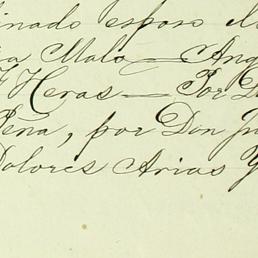 inado esposo
ra Malo — Ang
F Heras — Por D
Peña, por Don Ju
Dolores Arias Y